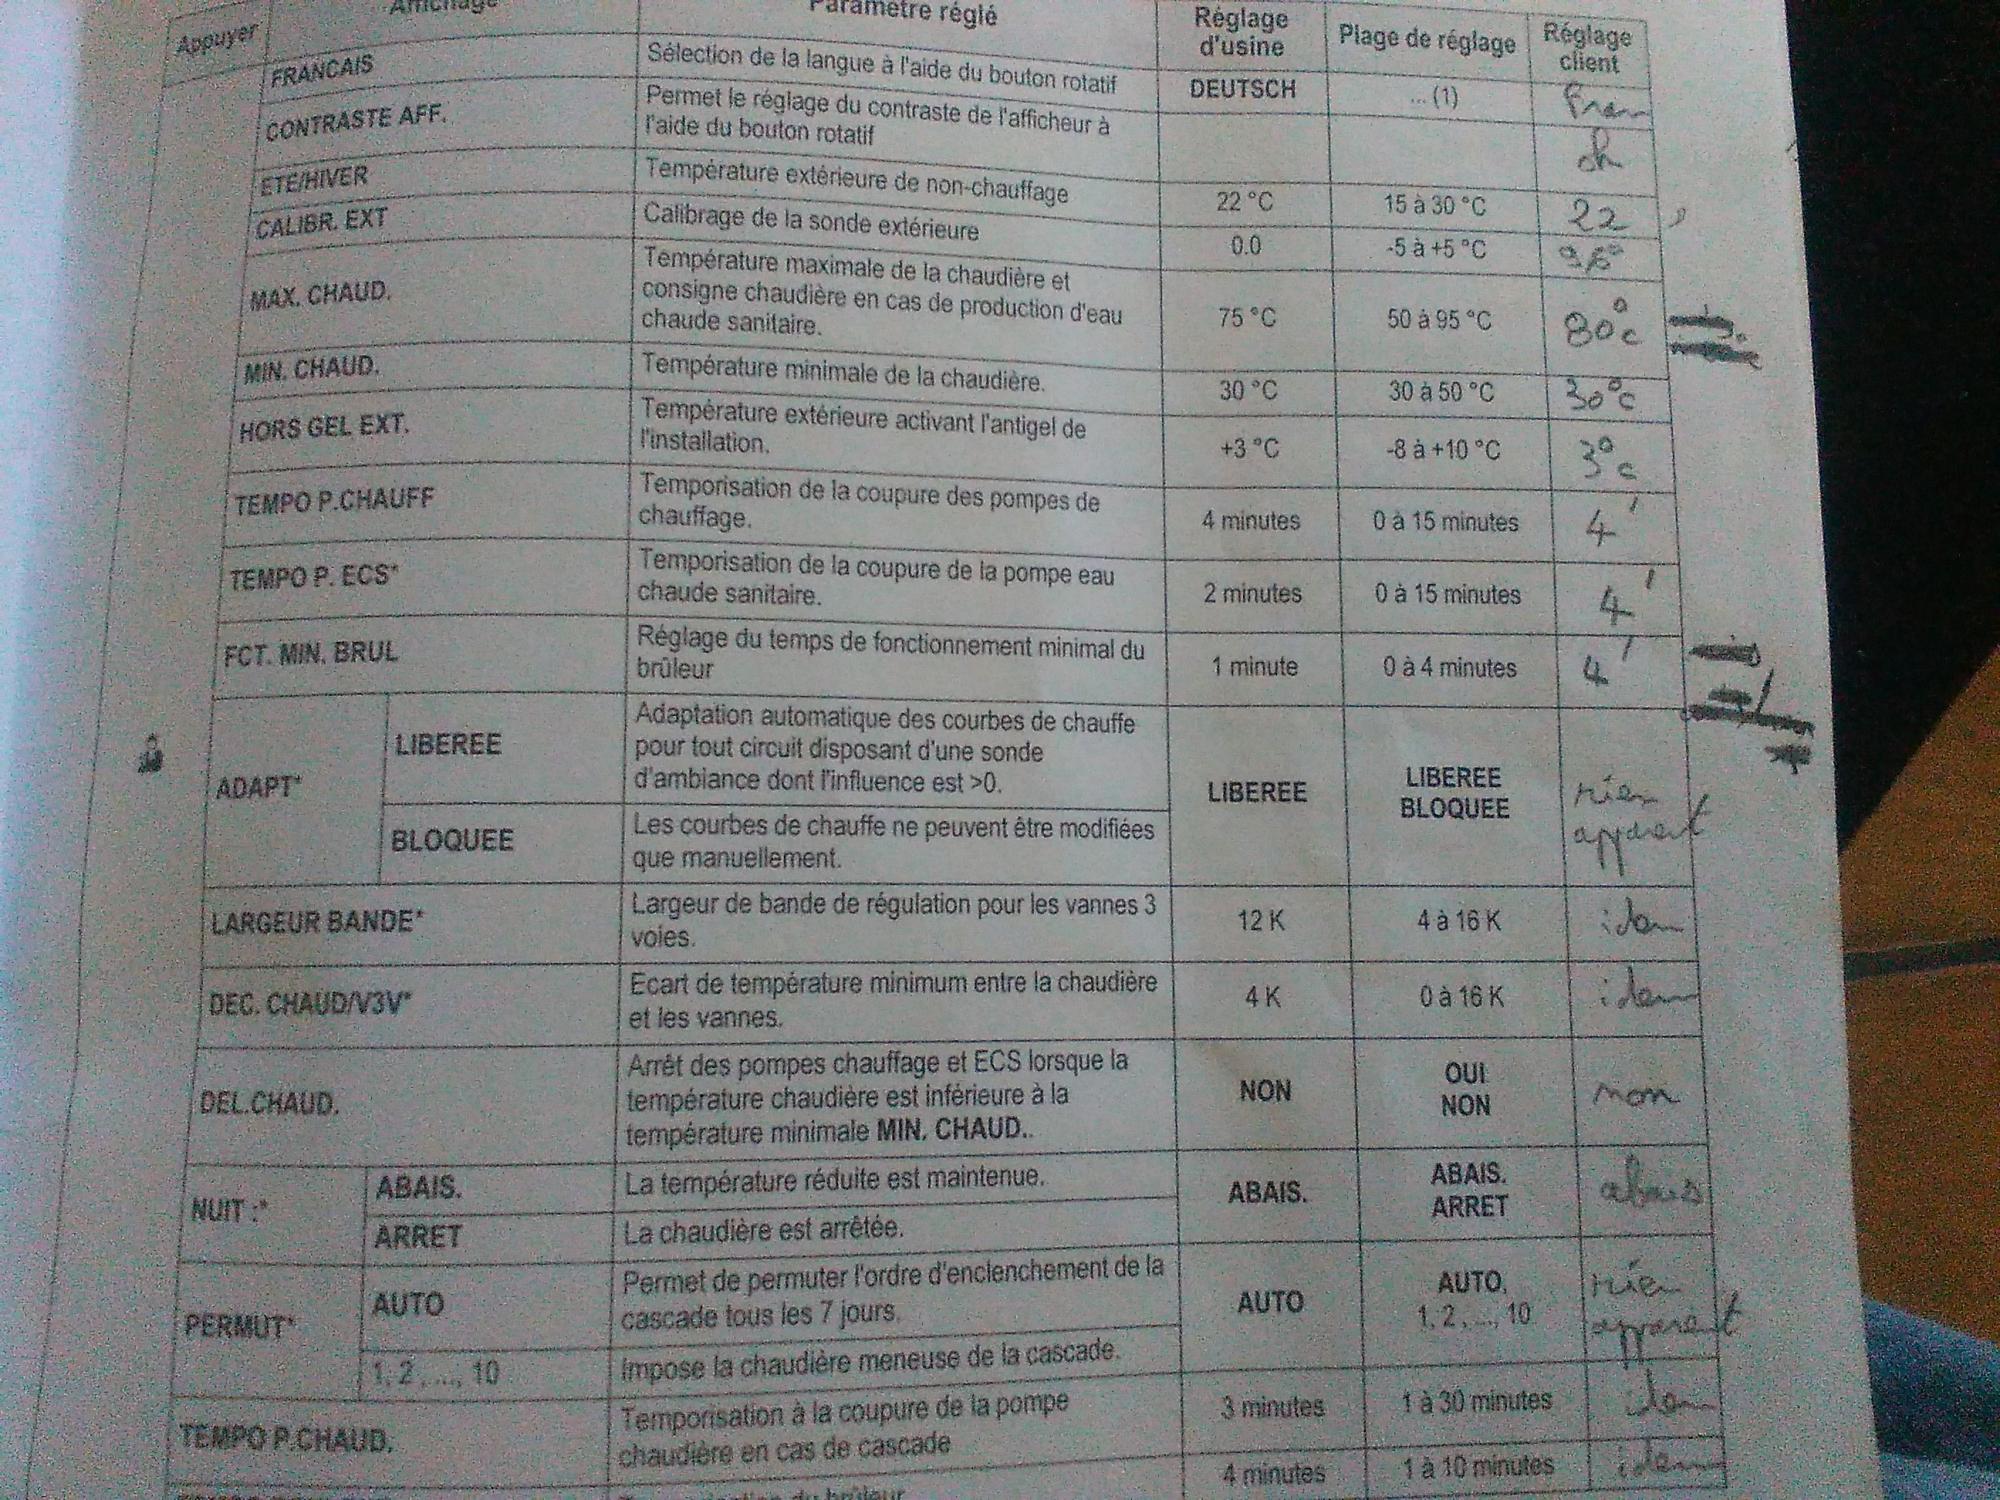 Appuyer
Affichage
Paramètre réglé
Réglage
d'usine
Plage de réglage
Réglage
client
FRANCAIS
Sélection de la langue à l'aide du bouton rotatif
DEUTSCH
... (1)
CONTRASTE AFF.
Permet le réglage du contraste de l'afficheur à
l'aide du bouton rotatif
ok
ETE/HIVER
Température extérieure de non-chauffage
22 °C
15 à 30 °C
22
CALIBR. EXT
Calibrage de la sonde extérieure
0.0
-5 à +5 °C
MAX. CHAUD.
Température maximale de la chaudière et
consigne chaudière en cas de production d'eau
chaude sanitaire.
75 °C
50 à 95 °C
80°c
MIN. CHAUD.
Température minimale de la chaudière.
30 °C
30 à 50 °C
30°c
HORS GEL EXT.
Température extérieure activant l'antigel de
l'installation.
+3 °C
-8 à +10 °C
3°c
TEMPO P.CHAUFF
Temporisation de la coupure des pompes de
chauffage.
4 minutes
0 à 15 minutes
4'
TEMPO P. ECS*
Temporisation de la coupure de la pompe eau
chaude sanitaire.
2 minutes
0 à 15 minutes
4'
FCT. MIN. BRUL
Réglage du temps de fonctionnement minimal du
brûleur
1 minute
0 à 4 minutes
4'
ADAPT*
LIBEREE
Adaptation automatique des courbes de chauffe
pour tout circuit disposant d'une sonde
d'ambiance dont l'influence est >0.
BLOQUEE
Les courbes de chauffe ne peuvent être modifiées
que manuellement.
LIBEREE
LIBEREE
BLOQUEE
rien
apparent
LARGEUR BANDE*
Largeur de bande de régulation pour les vannes 3
voies.
12 K
4 à 16 K
idem
DEC. CHAUD/V3V*
Ecart de température minimum entre la chaudière
et les vannes.
4 K
0 à 16 K
idem
DEL.CHAUD.
Arrêt des pompes chauffage et ECS lorsque la
température chaudière est inférieure à la
température minimale MIN. CHAUD..
NON
OUI
NON
non
NUIT :*
ABAIS.
La température réduite est maintenue.
ARRET
La chaudière est arrêtée.
ABAIS.
ABAIS.
ARRET
abais
PERMUT*
AUTO
Permet de permuter l'ordre d'enclenchement de la
cascade tous les 7 jours.
1, 2 , ..., 10
Impose la chaudière meneuse de la cascade.
AUTO
AUTO,
1, 2 , ..., 10
rien
apparent
TEMPO P.CHAUD.
Temporisation à la coupure de la pompe
chaudière en cas de cascade
3 minutes
1 à 30 minutes
idem
du brûleur
4 minutes
1 à 10 minutes
idem